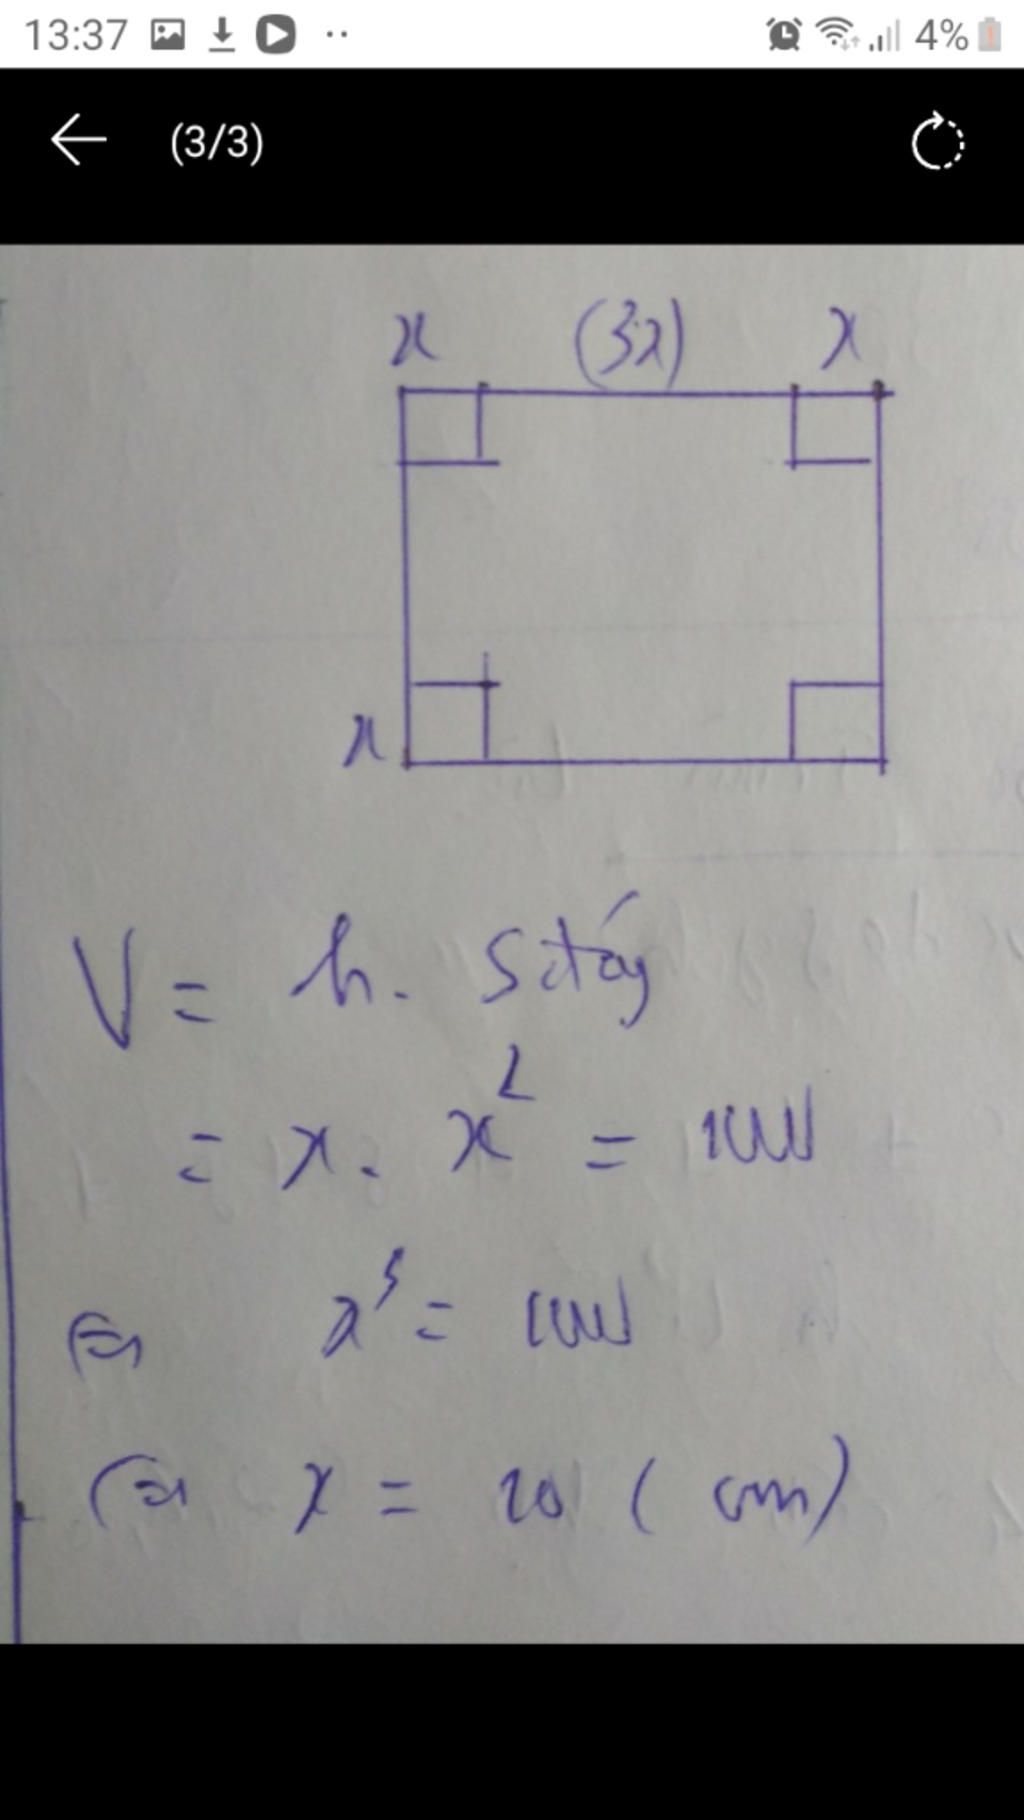 13:37 4%
(3/3)
x (3x) x
x
V = h. Sđáy
= x. x² = 1000
⇔ x³ = 1000
⇔ x = 10 (cm)